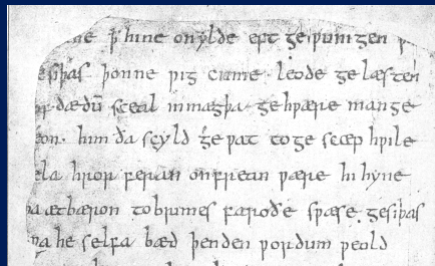 hine onylde eft gewunigen
gesiþas þonne wig cume leode gelæsten
dædū sceal in mægþa gehwære man ge
þeon. him ða scyld gewat to ge scæp hwile
fela hror feran on frean wære hi hyne
þa ætbæron to brimes faroðe swæse gesiþas
swa he selfa bæd þenden wordum weold